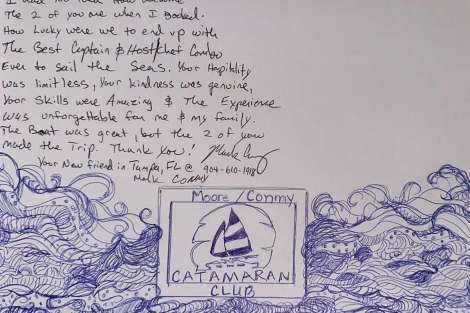 The 2 of you are when I Booked.
How Lucky were we to end up with
The Best Captain & Host/chef Combo
Ever to Sail the Seas. Your Hospitility
was limitless, Your kindness was genuine,
Your Skills were Amazing & The Experience
was unforgettable for me & my family.
The Boat was great, but the 2 of you
made the Trip. Thank you!
Your New friend in Tampa, FL @ 904-610-1918
Mark Conmy
Moore/Conmy
CATAMARAN
CLUB